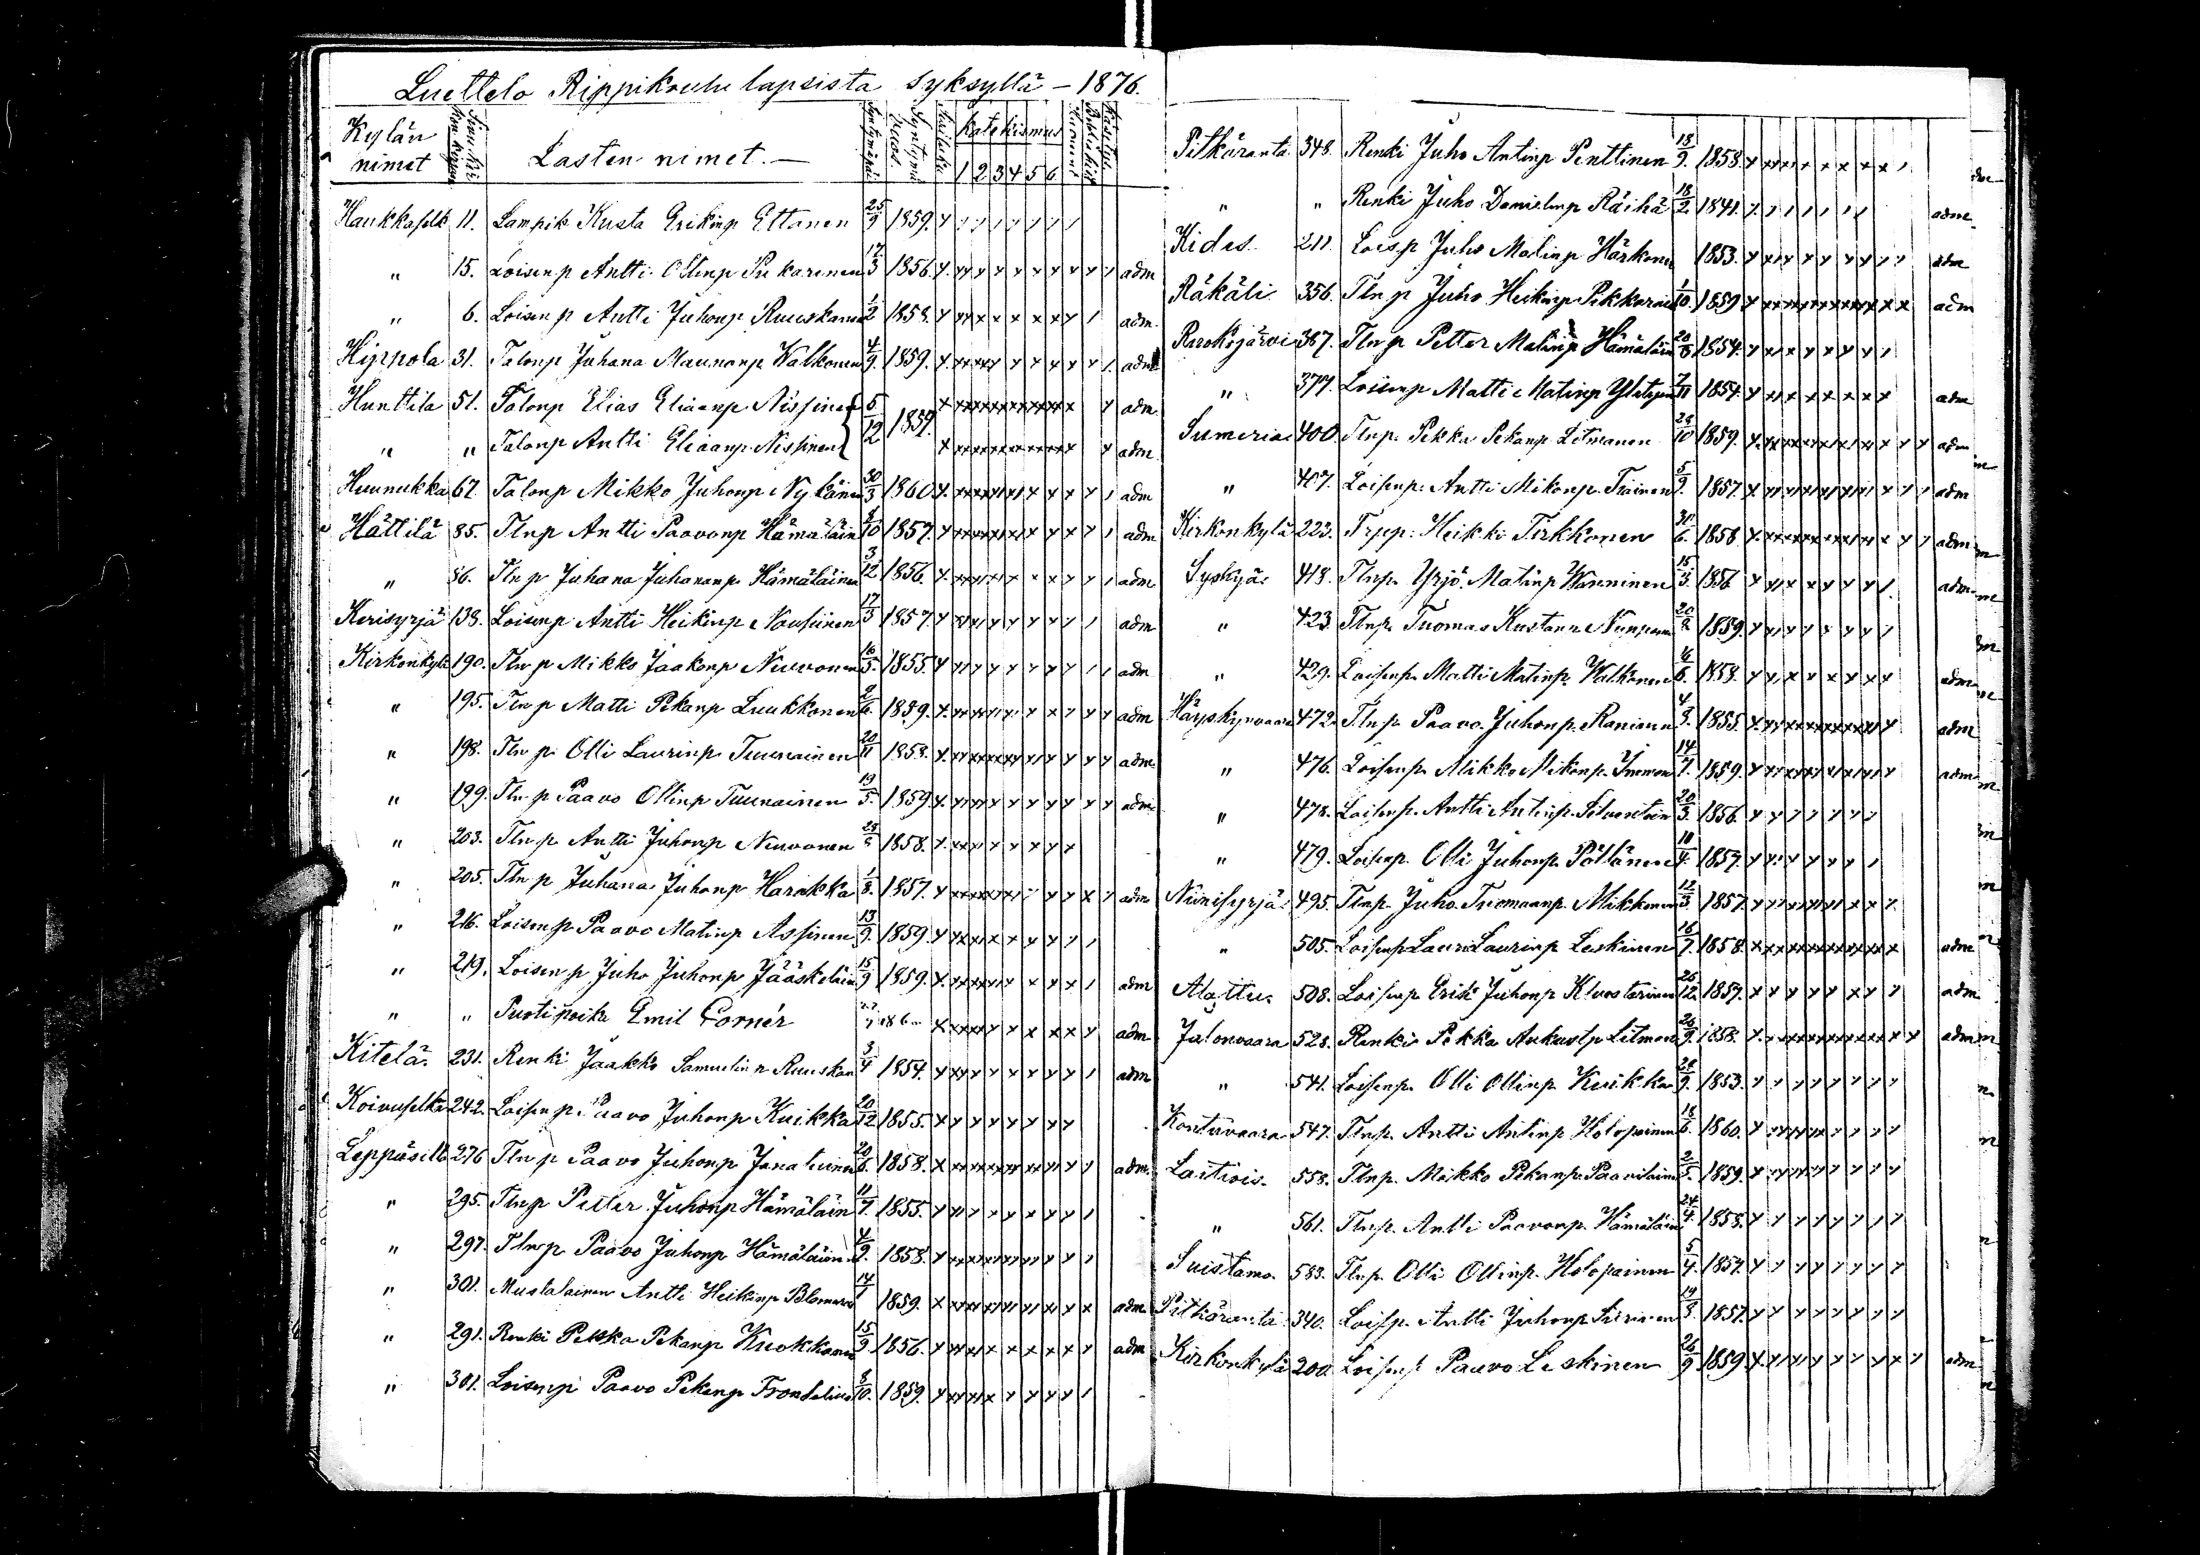 Luettelo Rippikoulu lapsista syksyllä – 1876.
Kylän nimet Lasten nimet. — Syntymä Katekismus
1 2 3 4 5 6
Haukkaselk 11. Lampik Kusta Erikinp Ettonen 25/9 1859.
" 15. Loisenp Antti Ollinp Pukarinen 17/3 1856. adm
" 6. Loisenp Antti Juhonp Ruuskanen 1/2 1858. adm.
Hippola 31. Talonp Juhana Maunonp Walkonen 4/9. 1859. adm
Hunttila 51. Talonp Elias Eliaanp Nissinen 5/12 1859. adm
" " Talonp Antti Eliaanp Nissinen adm
Huunukka 67. Talonp Mikko Juhonp Nykänen 30/3 1860. adm
Hättilä 85. Tlnp Antti Paavonp Hämäläin 8/10 1857. adm
" 86. Tlnp Juhana Juhananp Hämäläinen 3/12 1856. adm
Kerisyrjä 138. Loisenp Antti Heikinp Nousiinen 17/3 1857. adm
Kirkonkyl 190. Tlnp Mikko Jaakonp Neuvonen 16/5. 1855. adm
" 195. Tlnp Matti Pekanp Luukkonen 9/6. 1859. adm
" 198. Tlnp Olli Laurinp Tuunainen 20/11 1858. adm
" 199. Tlnp Paavo Ollinp Tuunainen 19/5. 1859. adm
" 203. Tlnp Antti Juhonp Neuvonen 1858.
" 205. Tlnp Juhana Juhonp Harakka 1/8. 1857. adm
" 216. Loisenp Paavo Matinp Assinen 13/9. 1859.
" 219. Loisenp Juho Juhonp Jääskeläin 15/9 1859. adm
" " Puotipoika Emil Cornér adm
Kitelä 231. Renki Jaakko Samuelin p Ruuskan 3/4 1854. adm
Koivuselkä 242. Loisenp Paavo Juhonp Kuikka 20/12 1855.
Leppäsilt 276 Tlnp Paavo Juhonp Janatuinen 20/6. 1858. adm
" 295. Tlnp Petter Juhonp Hämäläin 11/7. 1855.
" 297. Tlnp Paavo Juhonp Hämäläinen 4/9. 1858.
" 301. Mustalainen Antti Heikinp Blomerus 14/1 1859. adm
" 291. Renki Pekka Pekanp Kuokkanen 15/9 1856. adm
" 301. Loisenp Paavo Pekanp Trondelius 8/10. 1859.
Pitkäranta 348. Renki Juho Antinp Penttinen 13/9. 1858.
" " Renki Juho Danielinp Räihä 18/2 1841. adm
Kides 211. Loisp Juho Matinp Härkönen 1853. adm
Räkäli 356. Tlnp Juho Heikinp Pekkarai 1/10. 1859 adm
Ruokojärvi 367. Tlnp Petter Matinp Hämäläin 20/8 1854.
" 377. Loisenp Matti Matinp 7/11 1854. adm
Sumeria 400. Tlnp. Pekka Pekanp Litmanen 28/10 1859. adm
" 407. Loisenp. Antti Mikonp. Träinen 5/9. 1857. adm
Kirkonkylä 223. Trpp. Heikki Tirkkonen 30/6. 1858. adm
Syskyä 418. Tlnp. Yrjö Matinp Wänninen 15/3. 1856 adm
" 423. Tlnp. Tuomas Kustaan p Nuopnen 1859.
" 429. Loisenp. Matti Matinp. Walkonen 16/6. 1858. adm
Häyskynvaara 472. Tlnp. Paavo Juhonp. Raninen 4/9. 1855. adm
" 476. Loisenp. Mikko Mikonp. Immon 14/7. 1859. adm
" 478. Loisenp. Antti Antinp. Silventoin 20/3. 1856.
" 479. Loisenp. Olli Juhonp. Pöllänen 10/4. 1857.
Niinisyrjä 495. Tlnp. Juho Tuomaanp. Mikkonen 12/3. 1857.
" 505. Loisenp Lauri Laurinp Leskinen 16/7. 1858. adm
Alattu 508. Loisenp Erik Juhonp Kluostarinen 26/12. 1859. adm
Jalonvaara 528. Renki Pekka Aukustp Litmon 26/9. 1858. adm
" 541. Loisenp. Olli Ollinp Kuikka 28/9. 1853.
Kontuvaara 547. Tlnp. Antti Antinp Holopainen 18/6. 1860.
Lastiois. 558. Tlnp. Mikko Pekanp. Paavilainen 2/5. 1859.
" 561. Tlnp. Antti Paavonp. Hämäläin 24/4. 1858.
Suistamo. 583. Tlnp. Olli Ollinp. Holopainen 5/4. 1857.
Pitkäranta 340. Loisp. Antti Juhonp Siirinen 19/8 1857.
Kirkonkylä 200. Loisenp Paavo Leskinen 26/9. 1859. adm